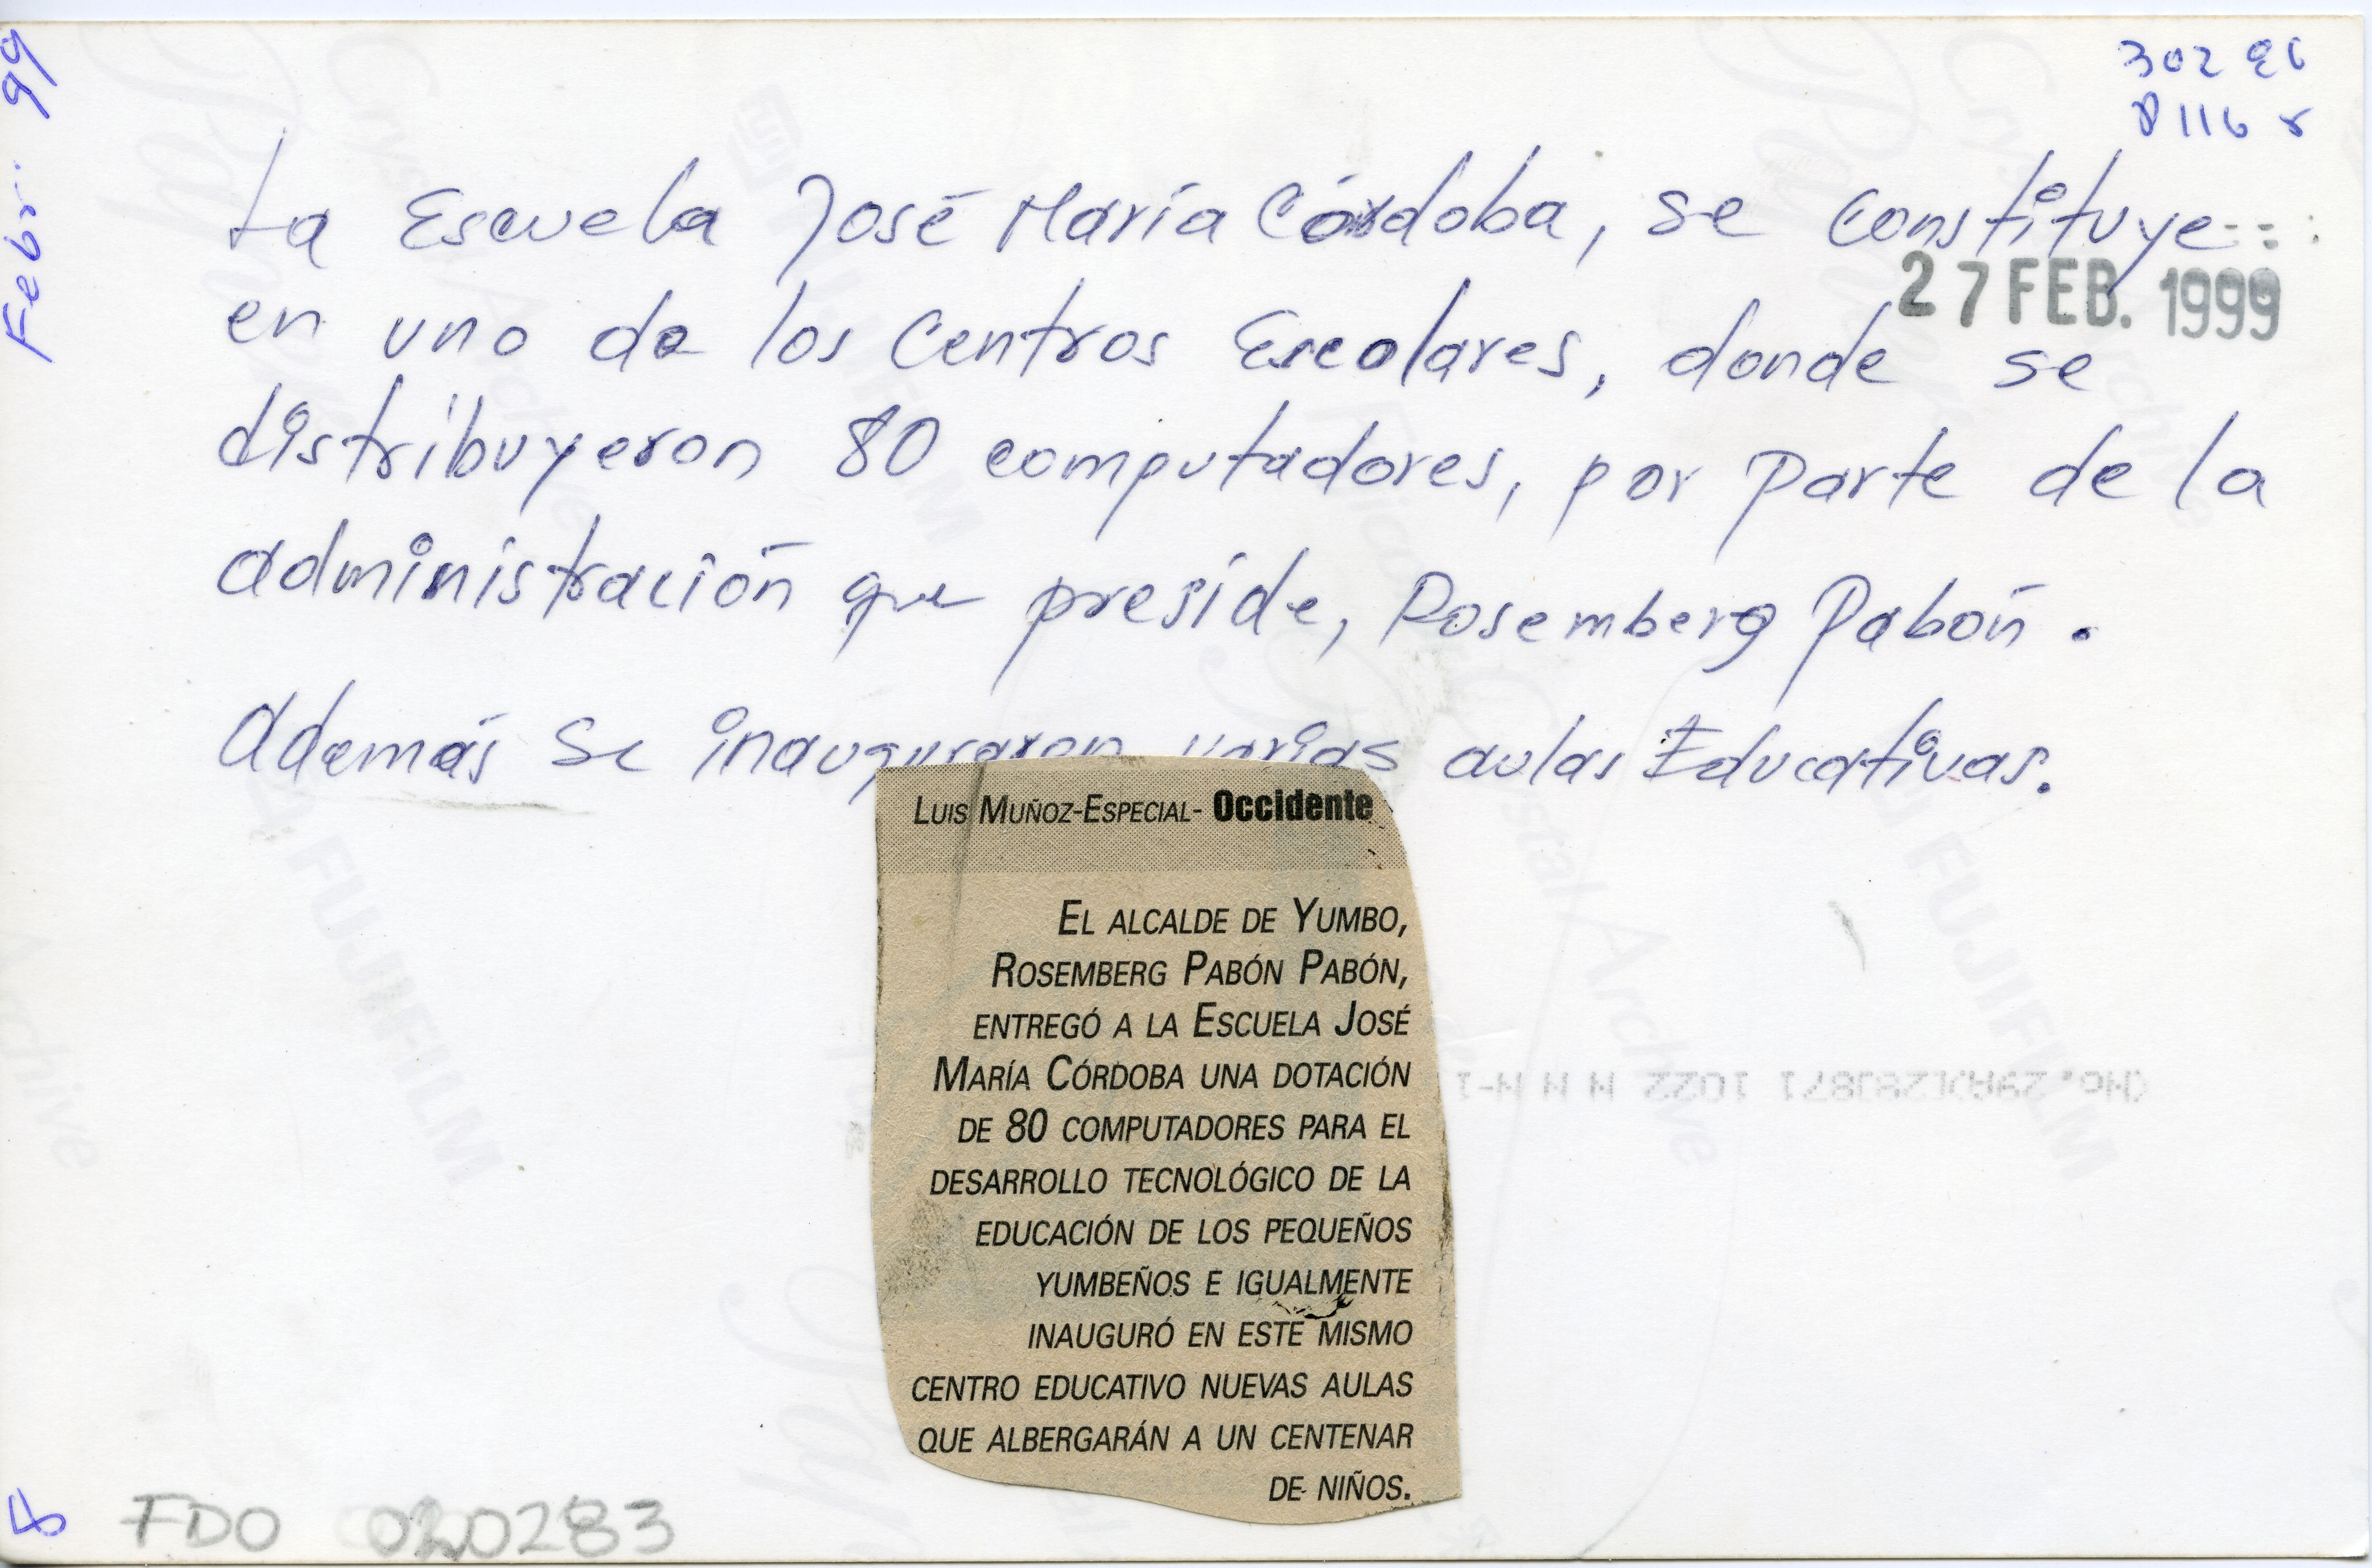 Febr. 99
La Escuela José María Córdoba, se constituye
27 FEB. 1999
en uno de los Centros Escolares, donde se
distribuyeron 80 computadores, por parte de la
administración que preside, Rosemberg Pabón.
Además se inauguraron varias aulas Educativas.
LUIS MUÑOZ-ESPECIAL- Occidente
EL ALCALDE DE YUMBO,
ROSEMBERG PABÓN PABÓN,
ENTREGÓ A LA ESCUELA JOSÉ
MARÍA CÓRDOBA UNA DOTACIÓN
DE 80 COMPUTADORES PARA EL
DESARROLLO TECNOLÓGICO DE LA
EDUCACIÓN DE LOS PEQUEÑOS
YUMBEÑOS E IGUALMENTE
INAUGURÓ EN ESTE MISMO
CENTRO EDUCATIVO NUEVAS AULAS
QUE ALBERGARÁN A UN CENTENAR
DE NIÑOS.
FDO 020283
FUJIFILM
Crystal Archive